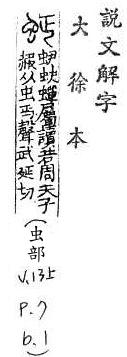 說文解字
大徐本
蚗蟬屬讀若周天子
赧从虫丏聲武延切
(虫部
V.135
P.7
b.1)